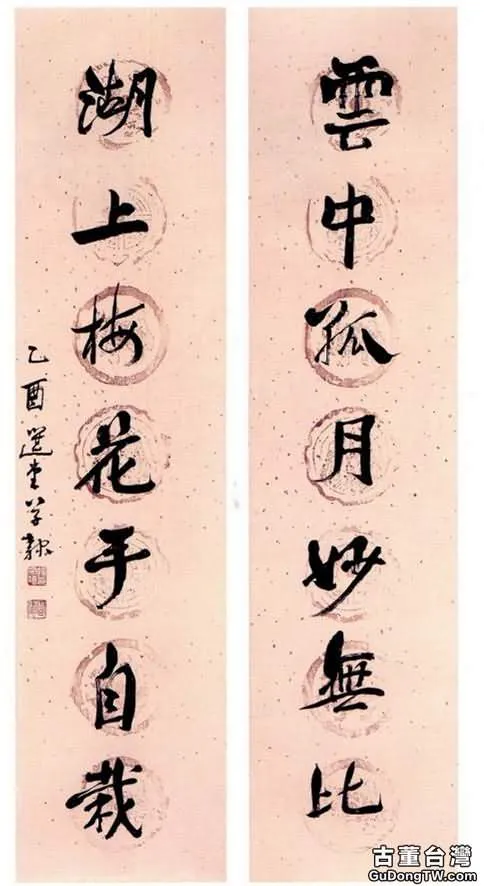 雲中孤月妙無比
湖上梅花手自栽
乙酉選堂
古董台灣
GuDongTW.com